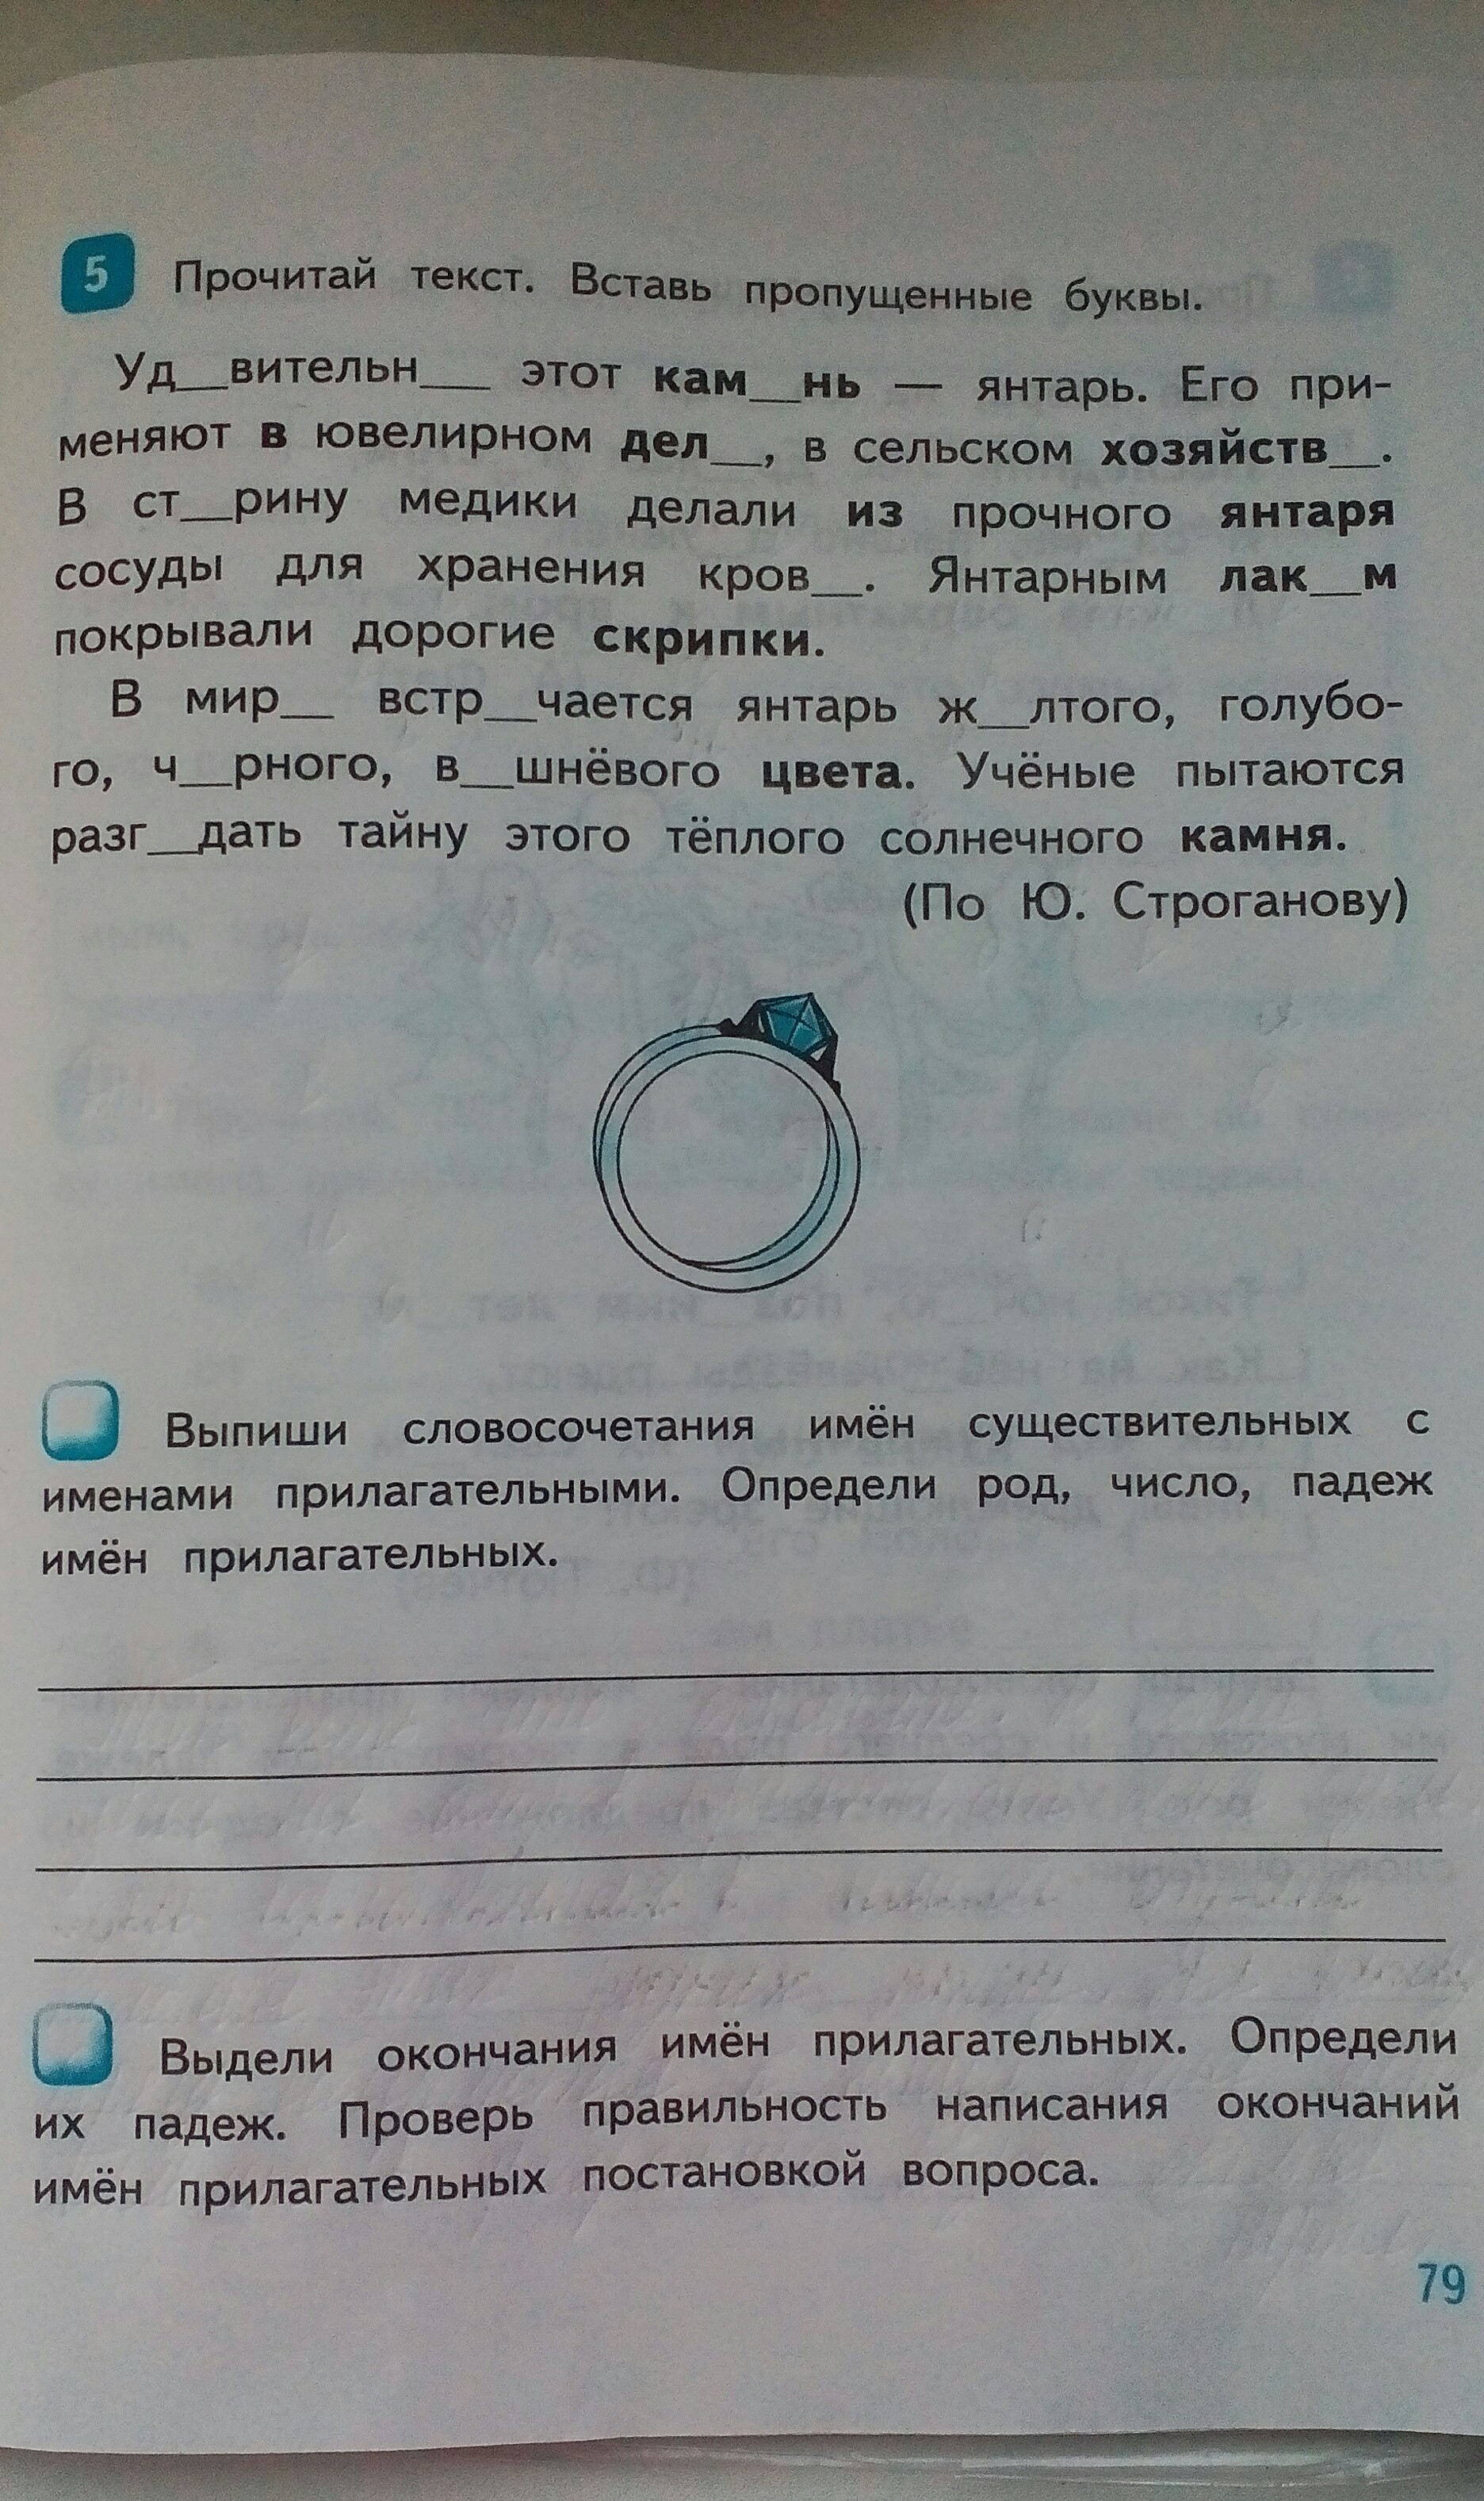 5 Прочитай текст. Вставь пропущенные буквы.
Уд__вительн___ этот кам__нь — янтарь. Его при-
меняют в ювелирном дел__, в сельском хозяйств__.
В ст__рину медики делали из прочного янтаря
сосуды для хранения кров__. Янтарным лак__м
покрывали дорогие скрипки.
В мир__ встр__чается янтарь ж__лтого, голубо-
го, ч__рного, в__шнёвого цвета. Учёные пытаются
разг__дать тайну этого тёплого солнечного камня.
(По Ю. Строганову)
Выпиши словосочетания имён существительных с
именами прилагательными. Определи род, число, падеж
имён прилагательных.
Выдели окончания имён прилагательных. Определи
их падеж. Проверь правильность написания окончаний
имён прилагательных постановкой вопроса.
79